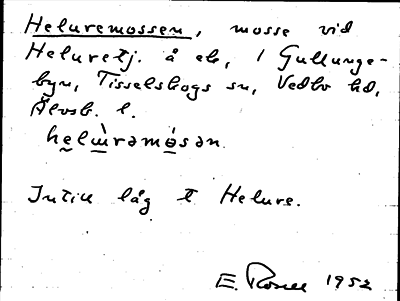 Heluremossen, mosse vid
Heluretj. å eb, i Gullunge-
byn, Tisselskogs sn, Vedbo hd,
Älvsb. l.
helɯ̀rəmo̱sən
Intill låg t Helure.
E. Rosell 1952